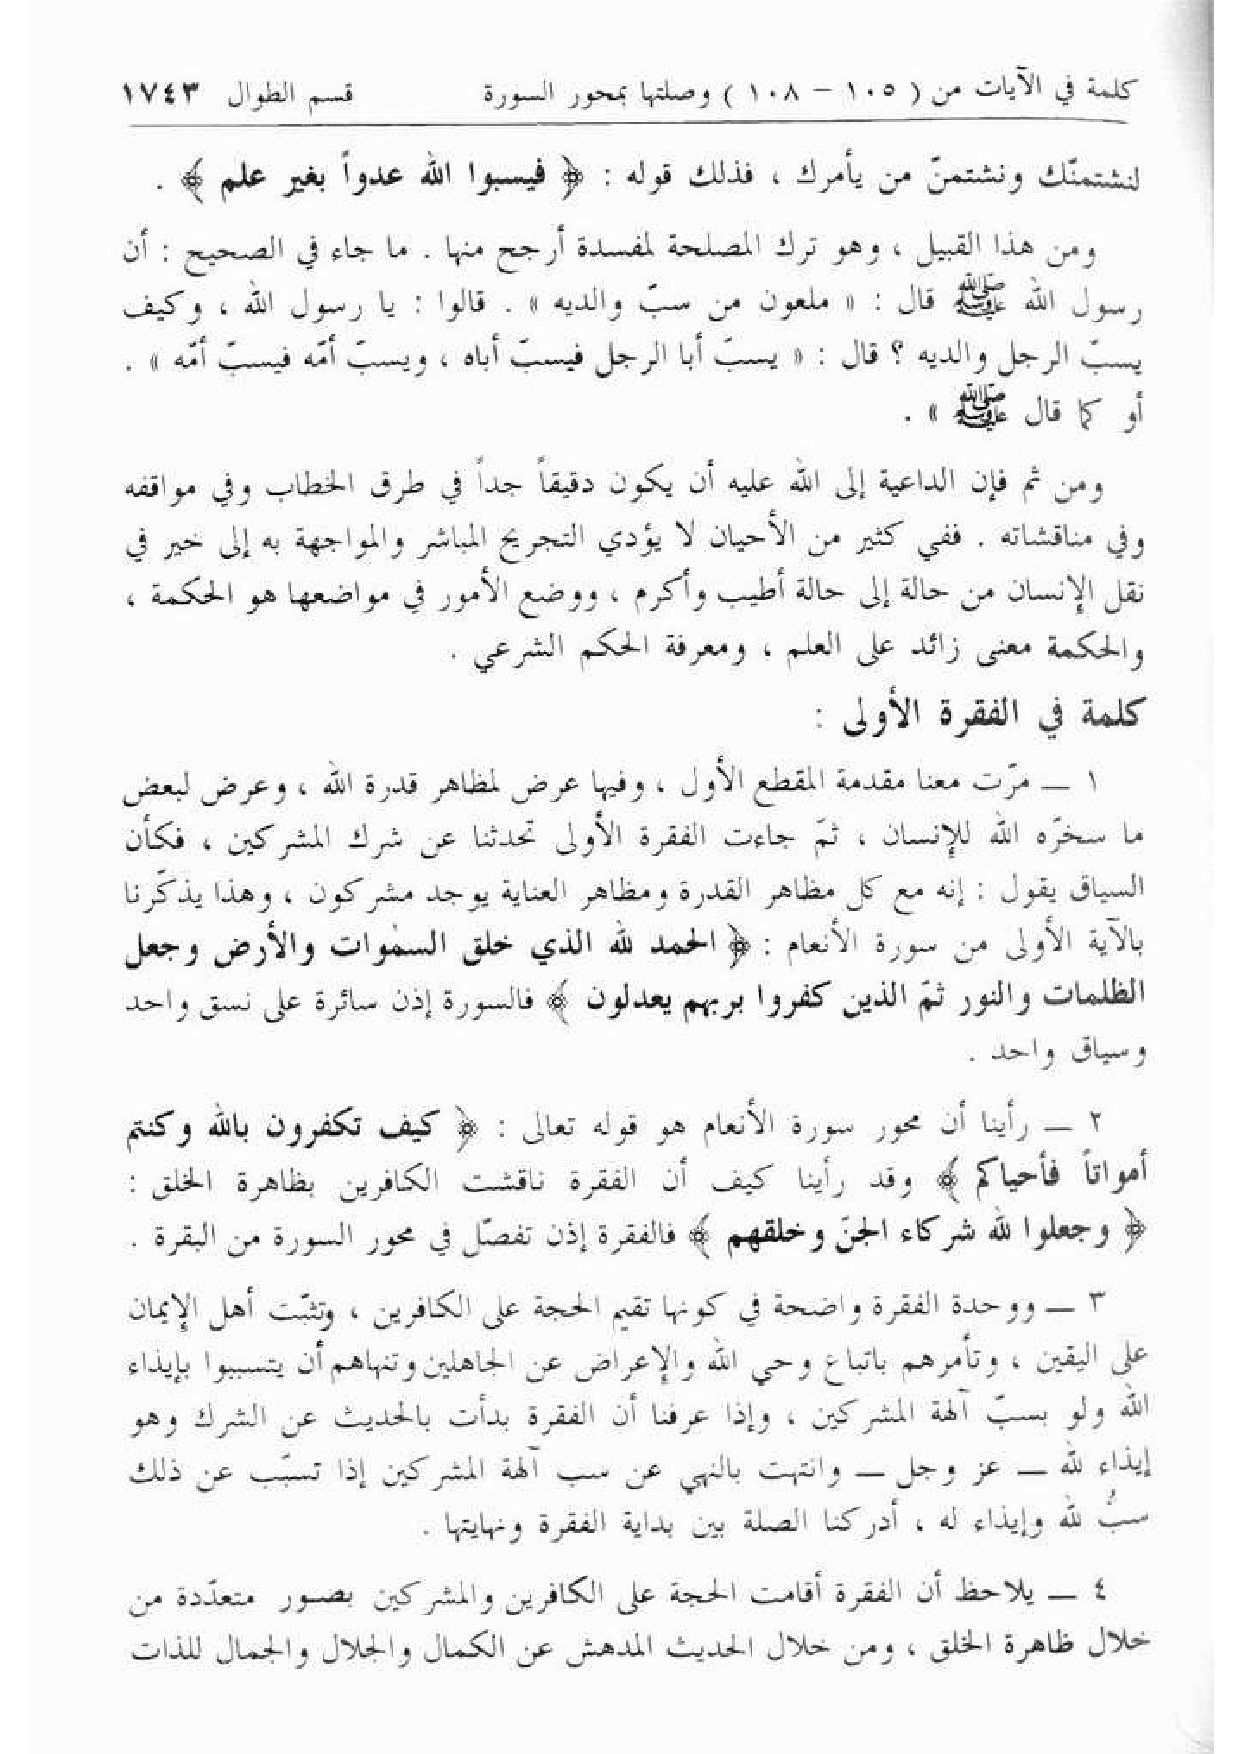 كلمة في الآيات من ( ١٠٥ – ١٠٨ ) وصلتها بمحور السورة قسم الطوال ١٧٤٣
لنشتمنّك ونشتمنّ من يأمرك ، فذلك قوله : ﴿ فيسبوا الله عدواً بغير علم ﴾ .
ومن هذا القبيل ، وهو ترك المصلحة لمفسدة أرجح منها . ما جاء في الصحيح : أن
رسول الله ﷺ قال : « ملعون من سبّ والديه » . قالوا : يا رسول الله ، وكيف
يسبّ الرجل والديه ؟ قال : « يسبّ أبا الرجل فيسبّ أباه ، ويسبّ أمّه فيسبّ أمّه » .
أو كما قال ﷺ » .
ومن ثم فإن الداعية إلى الله عليه أن يكون دقيقاً جداً في طرق الخطاب وفي مواقفه
وفي مناقشاته . ففي كثير من الأحيان لا يؤدي التجريح المباشر والمواجهة به إلى خير في
نقل الإنسان من حالة إلى حالة أطيب وأكرم ، ووضع الأمور في مواضعها هو الحكمة ،
والحكمة معنى زائد على العلم ، ومعرفة الحكم الشرعي .
كلمة في الفقرة الأولى :
١ – مرّت معنا مقدمة المقطع الأول ، وفيها عرض لمظاهر قدرة الله ، وعرض لبعض
ما سخرّه الله للإنسان ، ثمّ جاءت الفقرة الأولى تحدثنا عن شرك المشركين ، فكأن
السياق يقول : إنه مع كل مظاهر القدرة ومظاهر العناية يوجد مشركون ، وهذا يذكّرنا
بالآية الأولى من سورة الأنعام : ﴿ الحمد لله الذي خلق السمٰوات والأرض وجعل
الظلمات والنور ثمّ الذين كفروا بربهم يعدلون ﴾ فالسورة إذن سائرة على نسق واحد
وسياق واحد .
٢ – رأينا أن محور سورة الأنعام هو قوله تعالى : ﴿ كيف تكفرون بالله وكنتم
أمواتاً فأحياكم ﴾ وقد رأينا كيف أن الفقرة ناقشت الكافرين بظاهرة الخلق :
﴿ وجعلوا لله شركاء الجنّ وخلقهم ﴾ فالفقرة إذن تفصّل في محور السورة من البقرة .
٣ – ووحدة الفقرة واضحة في كونها تقيم الحجة على الكافرين ، وتثبّت أهل الإيمان
على اليقين ، وتأمرهم باتباع وحي الله والإعراض عن الجاهلين وتنهاهم أن يتسببوا بإيذاء
الله ولو بسبّ آلهة المشركين ، وإذا عرفنا أن الفقرة بدأت بالحديث عن الشرك وهو
إيذاء لله – عز وجل – وانتهت بالنهي عن سب آلهة المشركين إذا تسبّب عن ذلك
سبُّ لله وإيذاء له ، أدركنا الصلة بين بداية الفقرة ونهايتها .
٤ – يلاحظ أن الفقرة أقامت الحجة على الكافرين والمشركين بصور متعدّدة من
خلال ظاهرة الخلق ، ومن خلال الحديث المدهش عن الكمال والجلال والجمال للذات